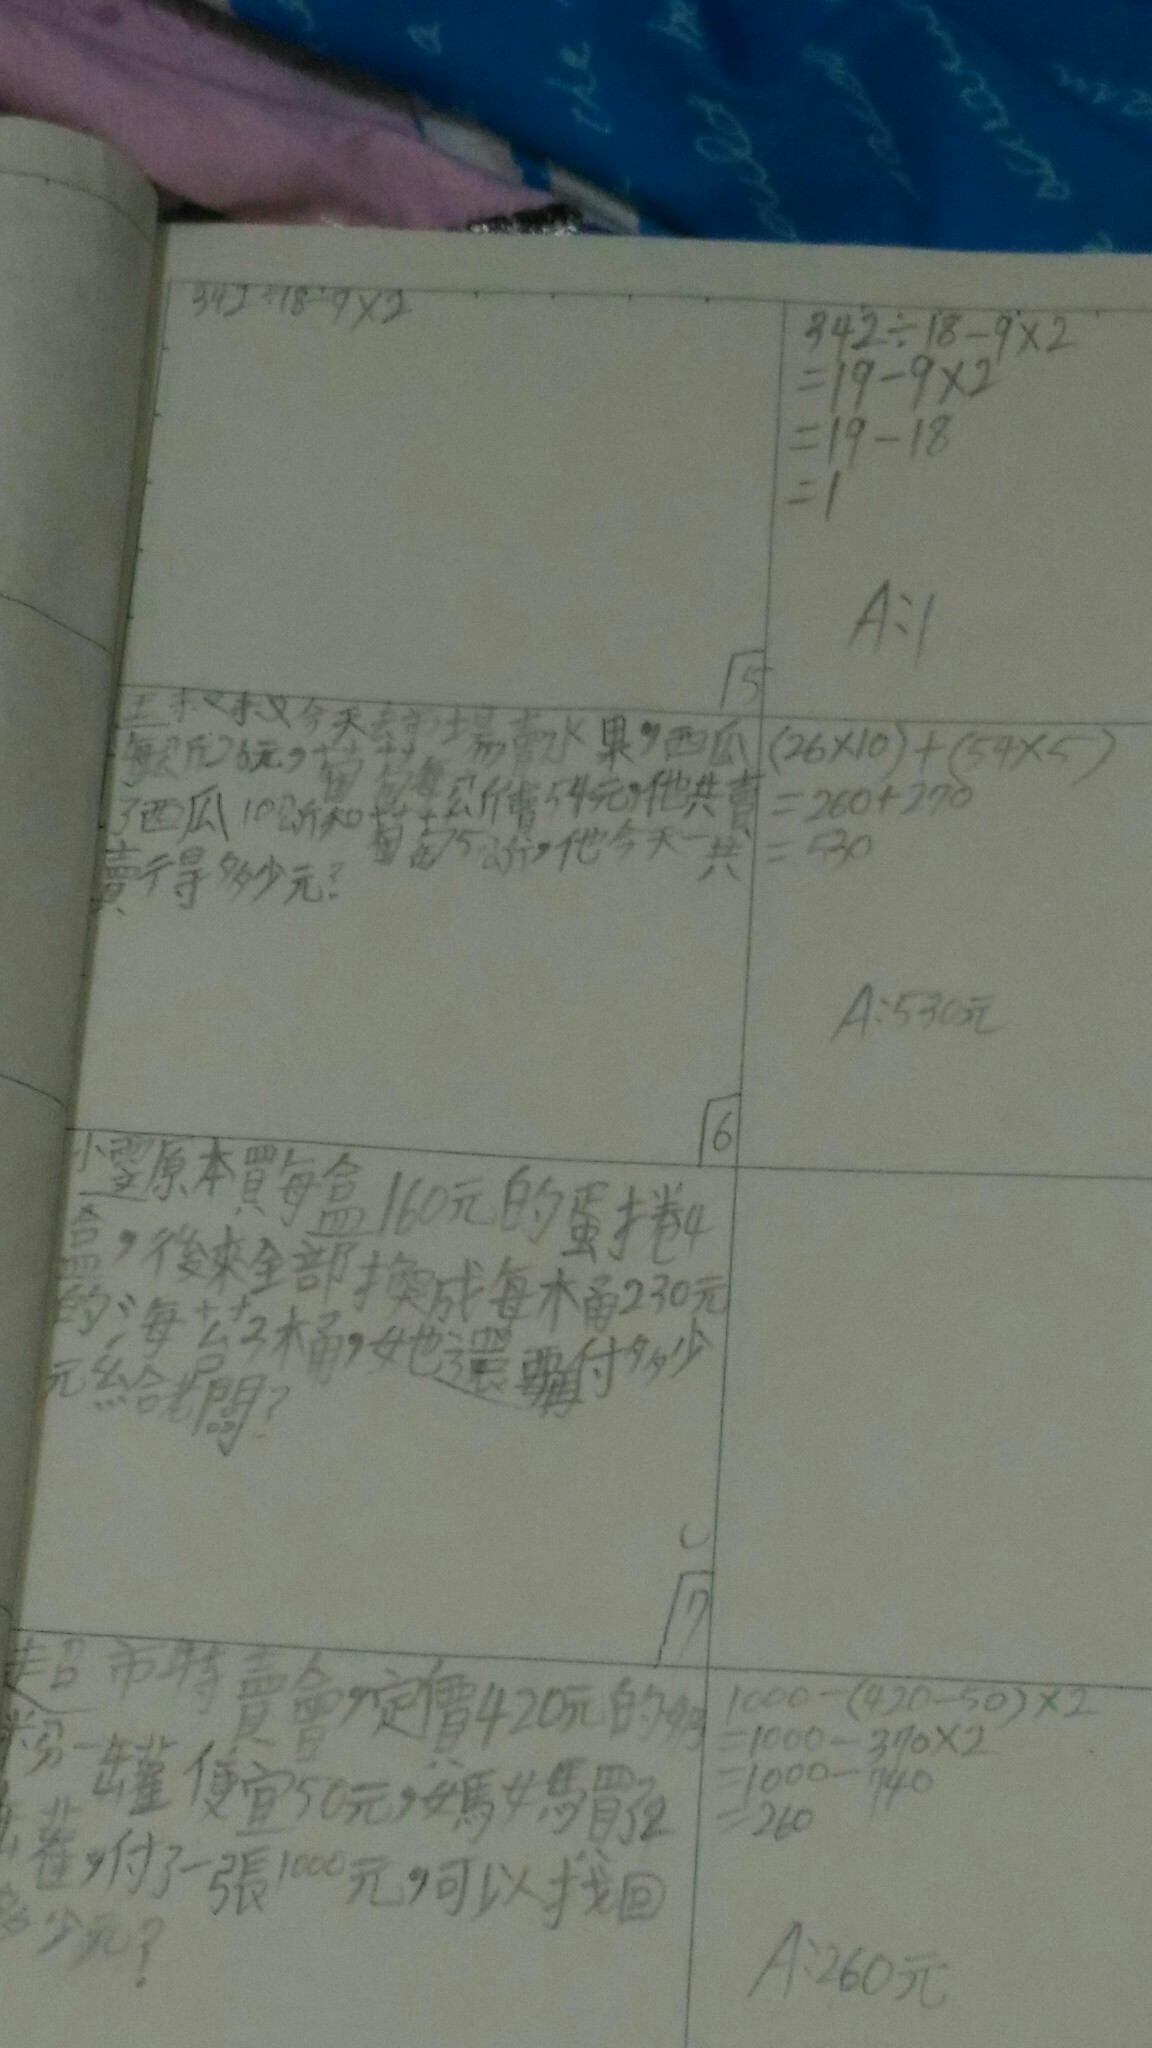 342÷18-9×2
342÷18-9×2
=19-9×2
=19-18
=1
A:1
5
王叔叔今天去市場賣水果,西瓜
每公斤26元,葡萄每公斤賣54元,他共賣
了西瓜10公斤和葡萄5公斤,他今天一共
賣得多少元?
(26×10)+(54×5)
=260+270
=530
A:530元
6
小雯原本買每盒160元的蛋捲4
盒,後來全部換成每桶230元
的海苔2桶,她還要付多少
元給老闆?
7
超市特賣會,定價420元的奶
粉一罐便宜50元,媽媽買了2
罐,付了一張1000元,可以找回
多少元?
1000-(420-50)×2
=1000-370×2
=1000-740
=260
A:260元